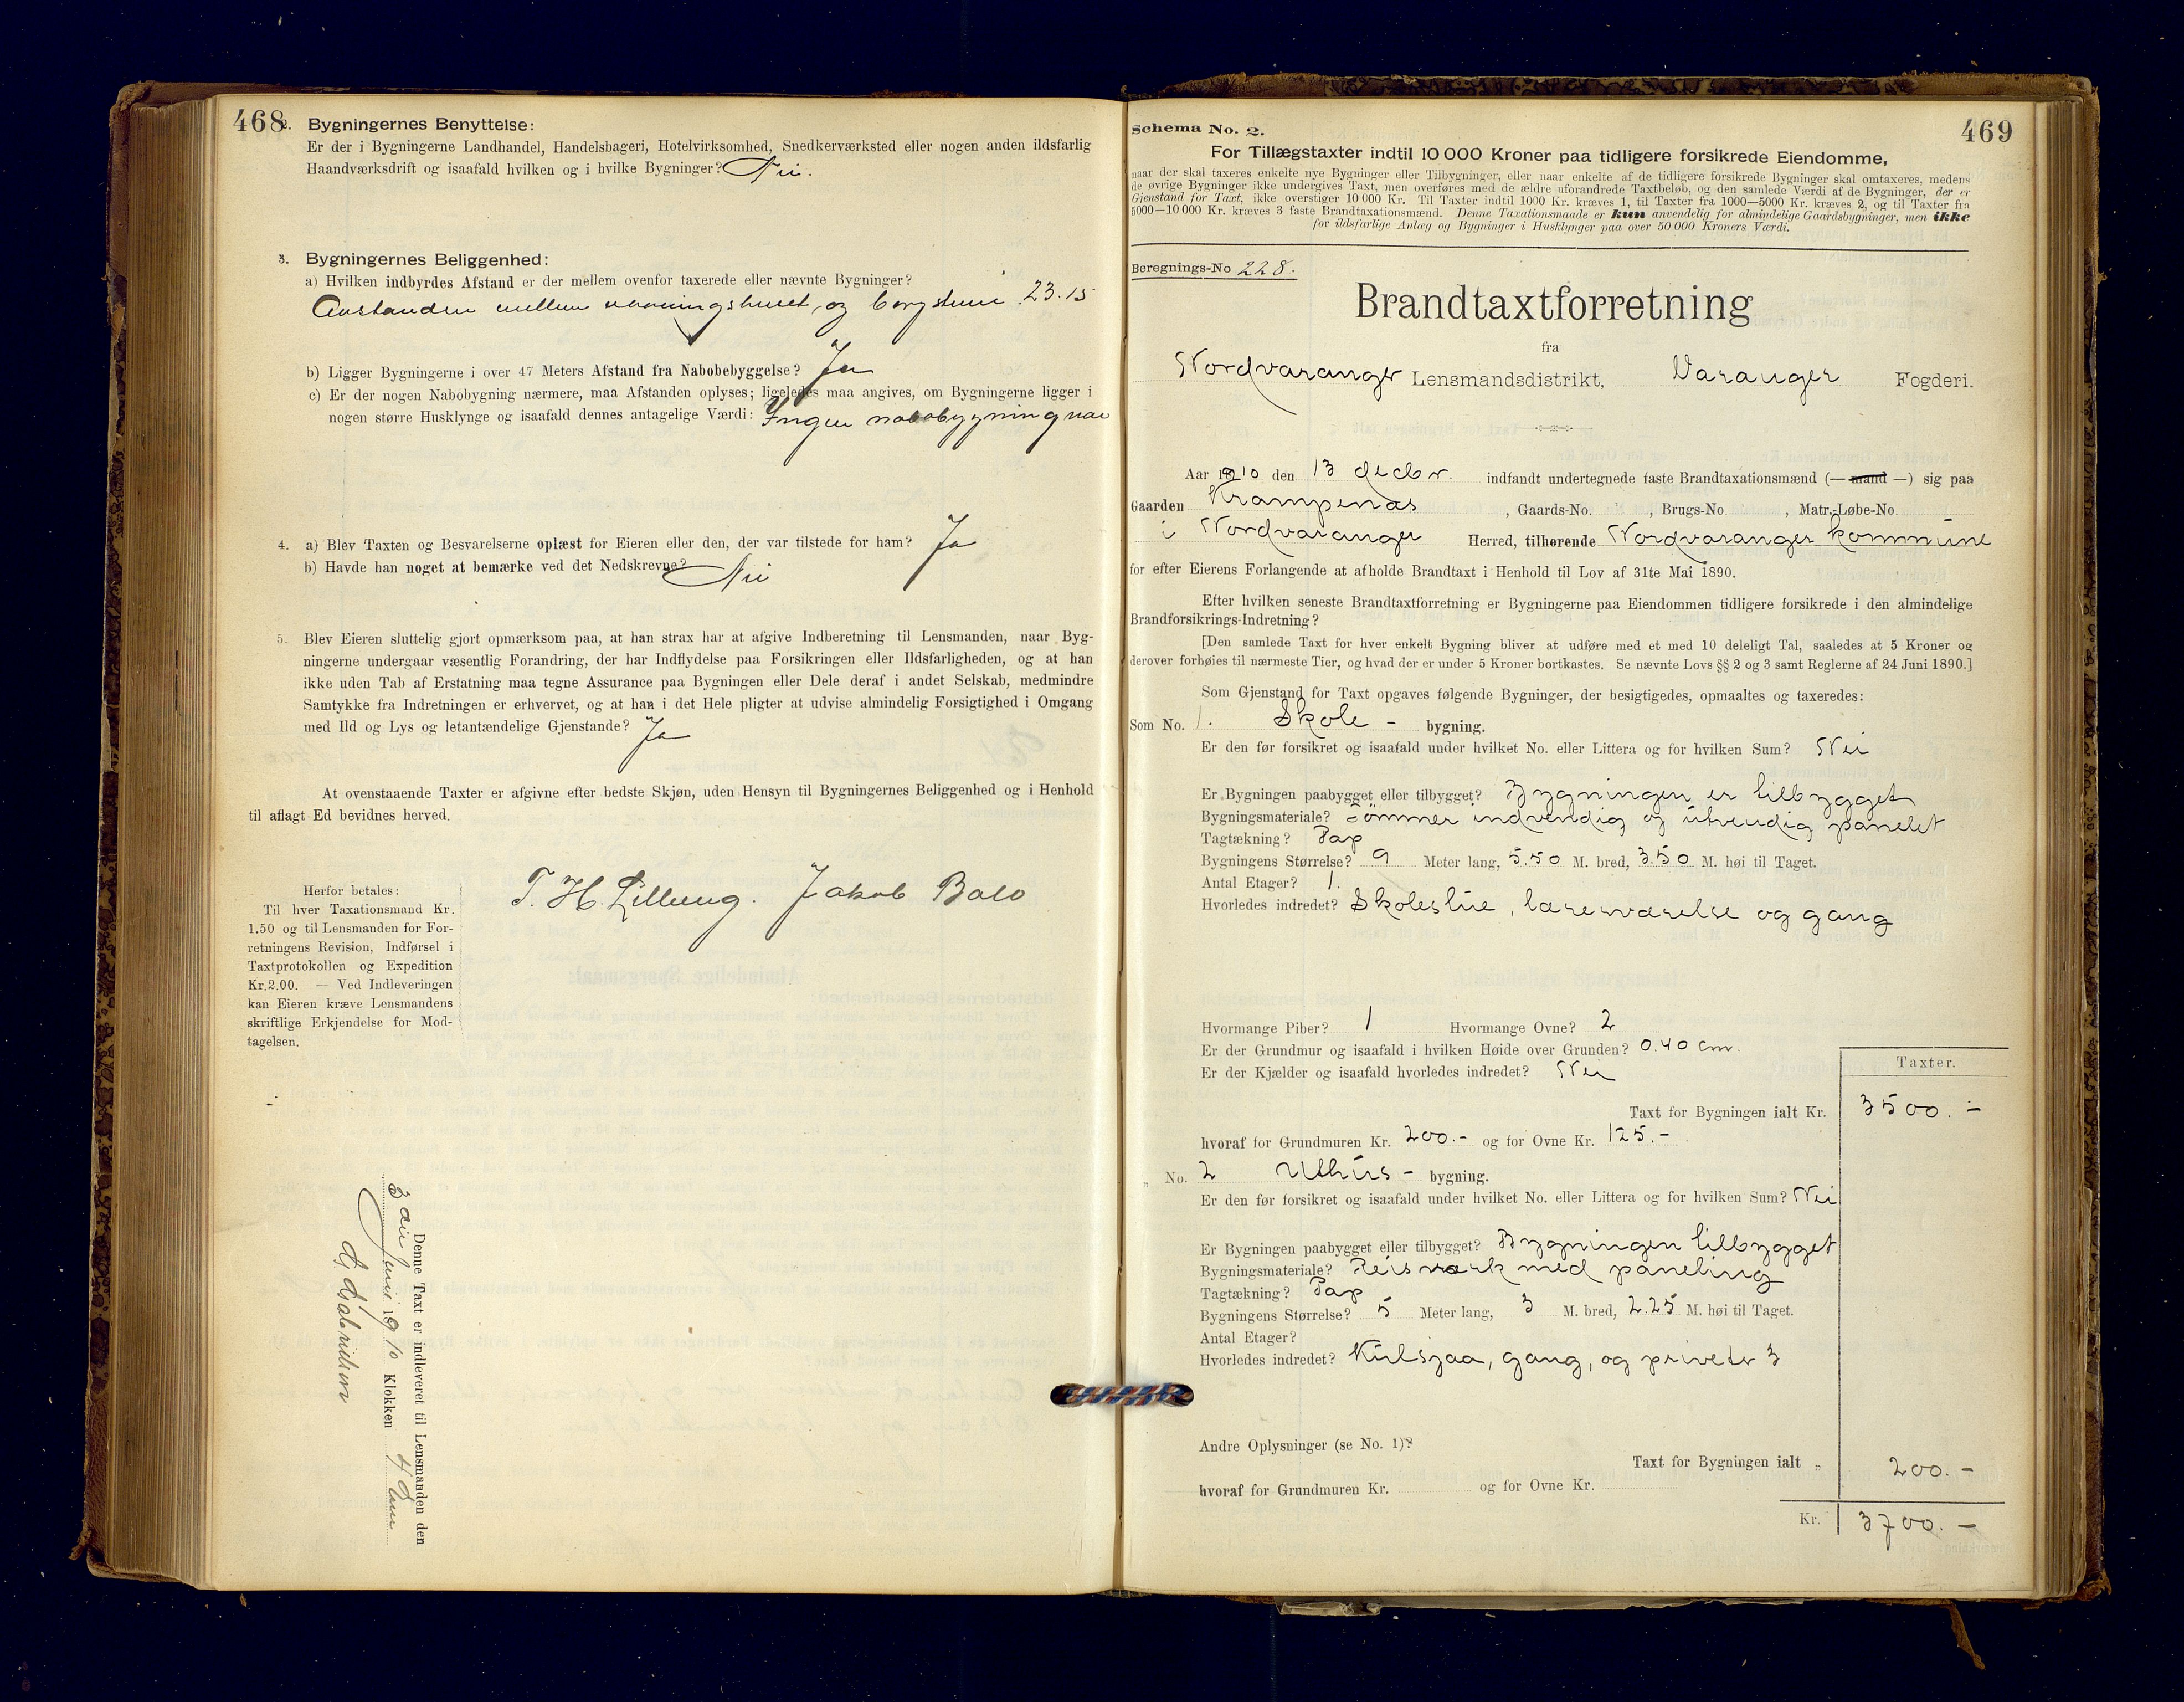 468
2. Bygningernes Benyttelse:
Er der i Bygningerne Landhandel, Handelsbageri, Hotelvirksomhed, Snedkerværksted eller nogen anden ildsfarlig
Haandværksdrift og isaafald hvilken og i hvilke Bygninger? Nei.
3. Bygningernes Beliggenhed:
a) Hvilken indbyrdes Afstand er der mellem ovenfor taxerede eller nævnte Bygninger?
Avstanden mellem vaaningshuset og 23.15
b) Ligger Bygningerne i over 47 Meters Afstand fra Nabobebyggelse? Ja
c) Er der nogen Nabobygning nærmere, maa Afstanden oplyses; ligeledes maa angives, om Bygningerne ligger i
nogen større Husklynge og isaafald dennes antagelige Værdi: Ingen nabobygning nær
4. a) Blev Taxten og Besvarelserne oplæst for Eieren eller den, der var tilstede for ham? Ja
b) Havde han noget at bemærke ved det Nedskrevne? Nei
5. Blev Eieren sluttelig gjort opmærksom paa, at han strax har at afgive Indberetning til Lensmanden, naar Byg-
ningerne undergaar væsentlig Forandring, der har Indflydelse paa Forsikringen eller Ildsfarligheden, og at han
ikke uden Tab af Erstatning maa tegne Assurance paa Bygningen eller Dele deraf i andet Selskab, medmindre
Samtykke fra Indretningen er erhvervet, og at han i det Hele pligter at udvise almindelig Forsigtighed i Omgang
med Ild og Lys og letantændelige Gjenstande? Ja
At ovenstaaende Taxter er afgivne efter bedste Skjøn, uden Hensyn til Bygningernes Beliggenhed og i Henhold
til aflagt Ed bevidnes herved.
T. H. Lilleeng. Jakob Balo
Herfor betales:
Til hver Taxationsmand Kr.
1.50 og til Lensmanden for For-
retningens Revision, Indførsel i
Taxtprotokollen og Expedition
Kr. 2.00. — Ved Indleveringen
kan Eieren kræve Lensmandens
skriftlige Erkjendelse for Mod-
tagelsen.
Denne Taxt er indleveret til Lensmanden den
3 1910 Klokken 4
469
Schema No. 2.
For Tillægstaxter indtil 10 000 Kroner paa tidligere forsikrede Eiendomme,
naar der skal taxeres enkelte nye Bygninger eller Tilbygninger, eller naar enkelte af de tidligere forsikrede Bygninger skal omtaxeres, medens
de øvrige Bygninger ikke undergives Taxt, men overføres med de ældre uforandrede Taxtbeløb, og den samlede Værdi af de Bygninger, der er
Gjenstand for Taxt, ikke overstiger 10 000 Kr. Til Taxter indtil 1000 Kr. kræves 1, til Taxter fra 1000—5000 Kr. kræves 2, og til Taxter fra
5000—10 000 Kr. kræves 3 faste Brandtaxationsmænd. Denne Taxationsmaade er kun anvendelig for almindelige Gaardsbygninger, men ikke
for ildsfarlige Anlæg og Bygninger i Husklynger paa over 50 000 Kroners Værdi.
Beregnings-No 228.
Brandtaxtforretning
fra
Nordvaranger Lensmandsdistrikt, Varanger Fogderi.
Aar 1910 den 13 decbr. indfandt undertegnede faste Brandtaxationsmænd (— mand —) sig paa
Gaarden Krampenæs , Gaards-No. , Brugs-No , Matr.-Løbe-No.
i Nordvaranger Herred, tilhørende Nordvaranger kommune
for efter Eierens Forlangende at afholde Brandtaxt i Henhold til Lov af 31te Mai 1890.
Efter hvilken seneste Brandtaxtforretning er Bygningerne paa Eiendommen tidligere forsikrede i den almindelige
Brandforsikrings-Indretning?
[Den samlede Taxt for hver enkelt Bygning bliver at udføre med et med 10 deleligt Tal, saaledes at 5 Kroner og
derover forhøies til nærmeste Tier, og hvad der er under 5 Kroner bortkastes. Se nævnte Lovs §§ 2 og 3 samt Reglerne af 24 Juni 1890.]
Som Gjenstand for Taxt opgaves følgende Bygninger, der besigtigedes, opmaaltes og taxeredes:
Som No. 1. Skole - bygning.
Er den før forsikret og isaafald under hvilket No. eller Littera og for hvilken Sum? Nei
Er Bygningen paabygget eller tilbygget? Bygningen er tilbygget
Bygningsmateriale? Tömmer indvendig og utvendig panelet
Tagtækning? Pap
Bygningens Størrelse? 9 Meter lang, 5.50 M. bred, 3.50 M. høi til Taget.
Antal Etager? 1.
Hvorledes indredet? Skolestue, læreværelse og gang
Hvormange Piber? 1 Hvormange Ovne? 2
Er der Grundmur og isaafald i hvilken Høide over Grunden? 0.40 cm.
Er der Kjælder og isaafald hvorledes indredet? Nei
Taxter.
Taxt for Bygningen ialt Kr. 3500.-
hvoraf for Grundmuren Kr. 200.- og for Ovne Kr. 125.-
„ No. 2 Uthus - bygning.
Er den før forsikret og isaafald under hvilket No. eller Littera og for hvilken Sum? Nei
Er Bygningen paabygget eller tilbygget? Bygningen tilbygget
Bygningsmateriale? Reisværk med paneling
Tagtækning? Pap
Bygningens Størrelse? 5 Meter lang, 3 M. bred, 2.25 M. høi til Taget.
Antal Etager?
Hvorledes indredet? Kulsjaa, gang, og priveter 3
Andre Oplysninger (se No. 1)?
Taxt for Bygningen ialt „ 200.-
hvoraf for Grundmuren Kr. og for Ovne Kr.
Kr. 3700.-